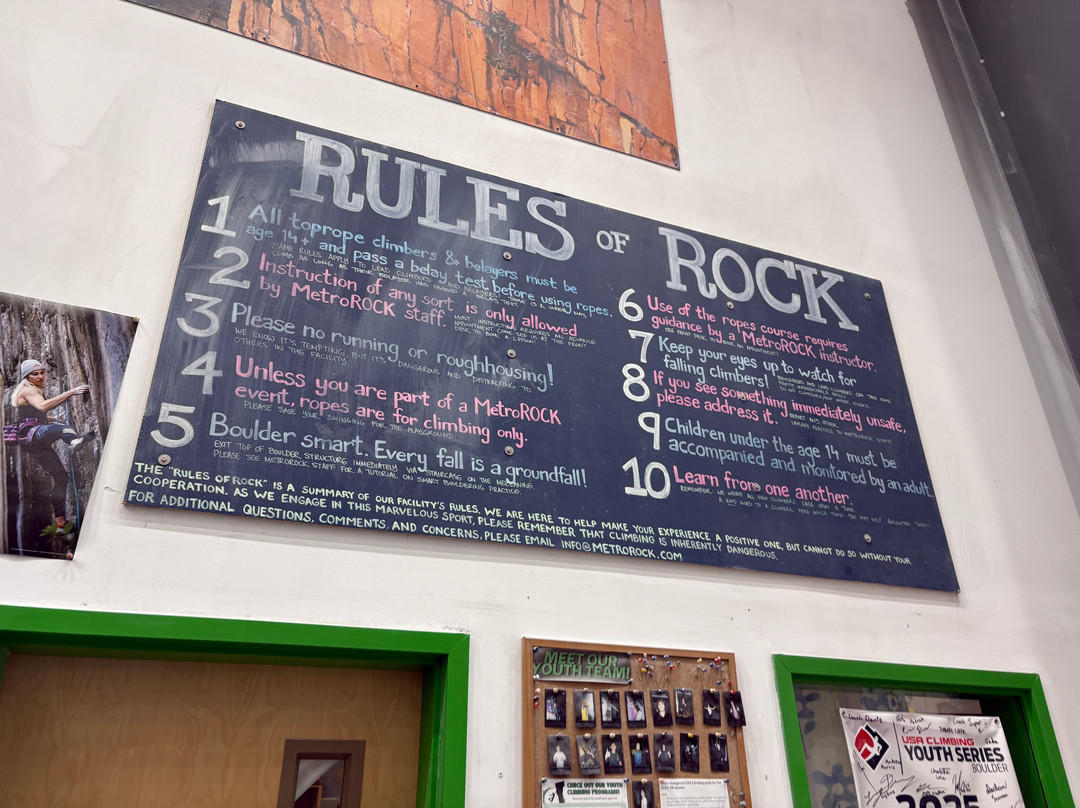 RULES OF ROCK
1 All toprope climbers & belayers must be
age 14+ and pass a belay test before using ropes.
SAME RULES APPLY TO LEAD CLIMBERS AND BELAYERS!
CLIMB AS LONG AS THEIR BELAYER HAS PASSED A BELAY TEST
2 Instruction of any sort is only allowed
by MetroROCK staff.
MOST INSTRUCTION REQUIRES AN ADVANCE
APPOINTMENT. COME SEE US AT THE FRONT
DESK TO BOOK A LESSON!
3 Please no running or roughhousing!
WE KNOW IT'S TEMPTING, BUT IT'S DANGEROUS AND DISTRACTING TO
OTHERS IN THE FACILITY.
4 Unless you are part of a MetroROCK
event, ropes are for climbing only.
PLEASE SAVE YOUR SWINGING FOR THE PLAYGROUND.
5 Boulder smart. Every fall is a groundfall!
EXIT TOP OF BOULDER STRUCTURE IMMEDIATELY VIA STAIRCASE ON THE MEZZANINE.
PLEASE SEE METROROCK STAFF FOR A TUTORIAL ON SMART BOULDERING PRACTICE.
6 Use of the ropes course requires
guidance by a MetroROCK instructor.
SEE FRONT DESK TO BOOK AN APPOINTMENT!
7 Keep your eyes up to watch for
falling climbers!
8 If you see something immediately unsafe,
please address it.
REPORT ANY OTHER
UNSAFE PRACTICE TO METROROCK STAFF!
9 Children under the age 14 must be
accompanied and monitored by an adult.
10 Learn from one another.
REMEMBER, WE WERE ALL NEW CLIMBERS ONCE UPON A TIME.
THE "RULES OF ROCK" IS A SUMMARY OF OUR FACILITY'S RULES. WE ARE HERE TO HELP MAKE YOUR EXPERIENCE A POSITIVE ONE, BUT CANNOT DO SO WITHOUT YOUR
COOPERATION. AS WE ENGAGE IN THIS MARVELOUS SPORT, PLEASE REMEMBER THAT CLIMBING IS INHERENTLY DANGEROUS.
FOR ADDITIONAL QUESTIONS, COMMENTS, AND CONCERNS, PLEASE EMAIL INFO@METROROCK.COM
MEET OUR
YOUTH TEAM!
CHECK OUT OUR YOUTH
CLIMBING PROGRAMS!
USA CLIMBING
YOUTH SERIES
BOULDER
2025